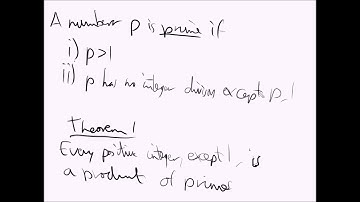 A number p is prime if
i) p>1
ii) p has no integer divisors except p, 1
Theorem 1
Every positive integer, except 1, is
a product of primes